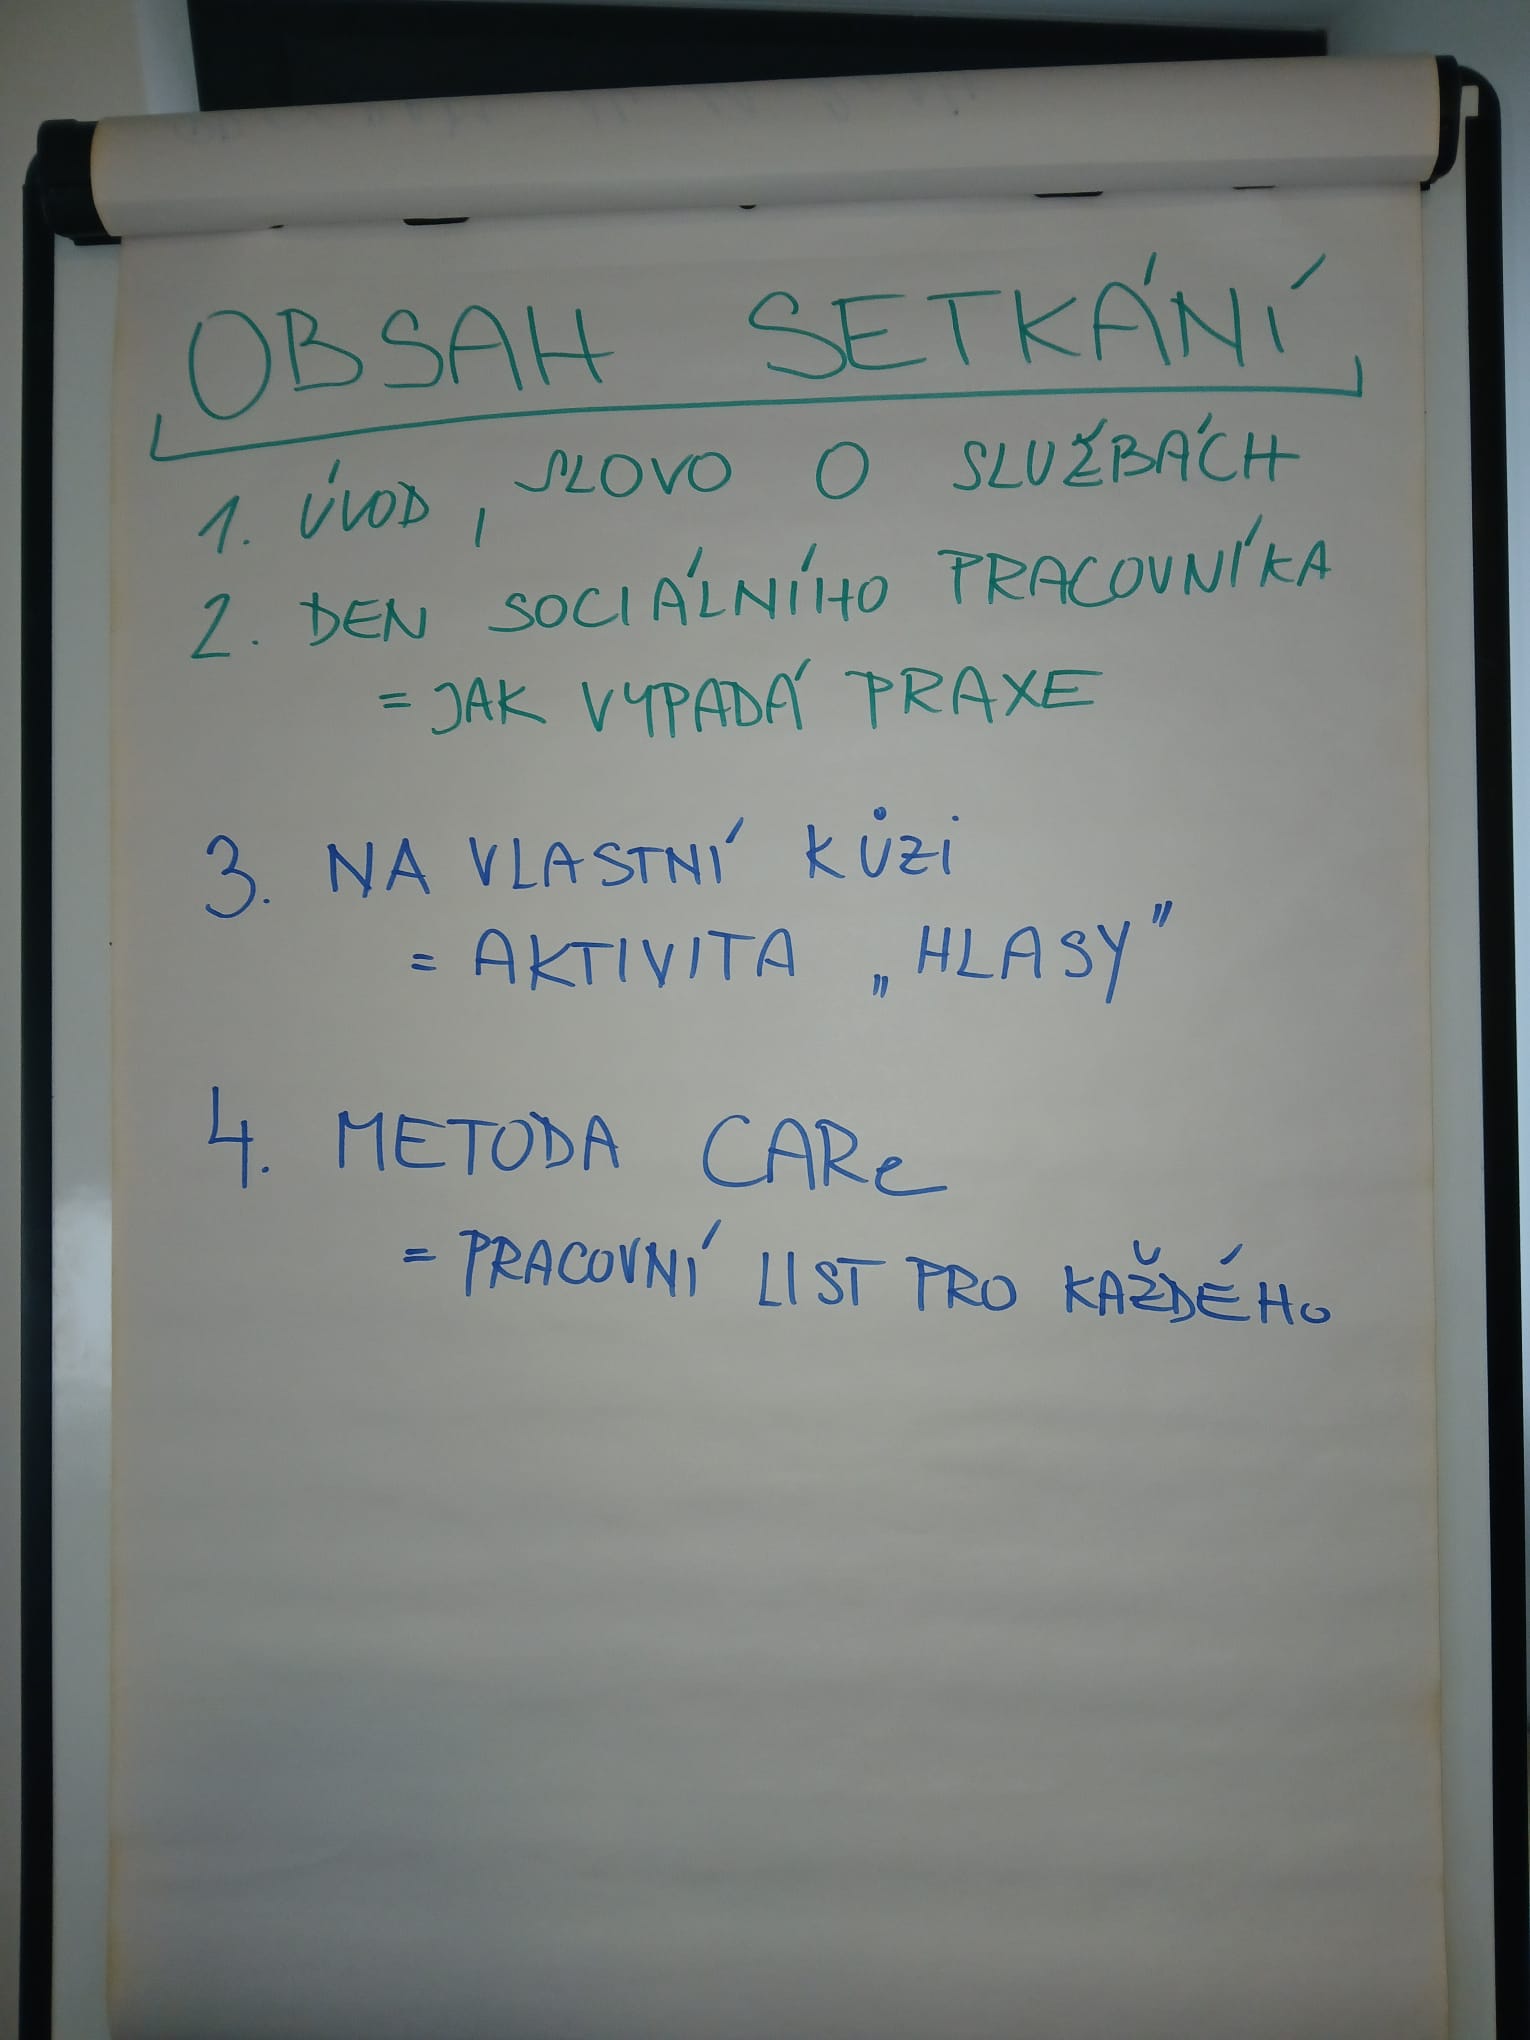 OBSAH SETKÁNÍ
1. ÚVOD, SLOVO O SLUŽBÁCH
2. DEN SOCIÁLNÍHO PRACOVNÍKA
= JAK VYPADÁ PRAXE
3. NA VLASTNÍ KŮZI
= AKTIVITA „HLASY"
4. METODA CARe
= PRACOVNÍ LIST PRO KAŽDÉHO